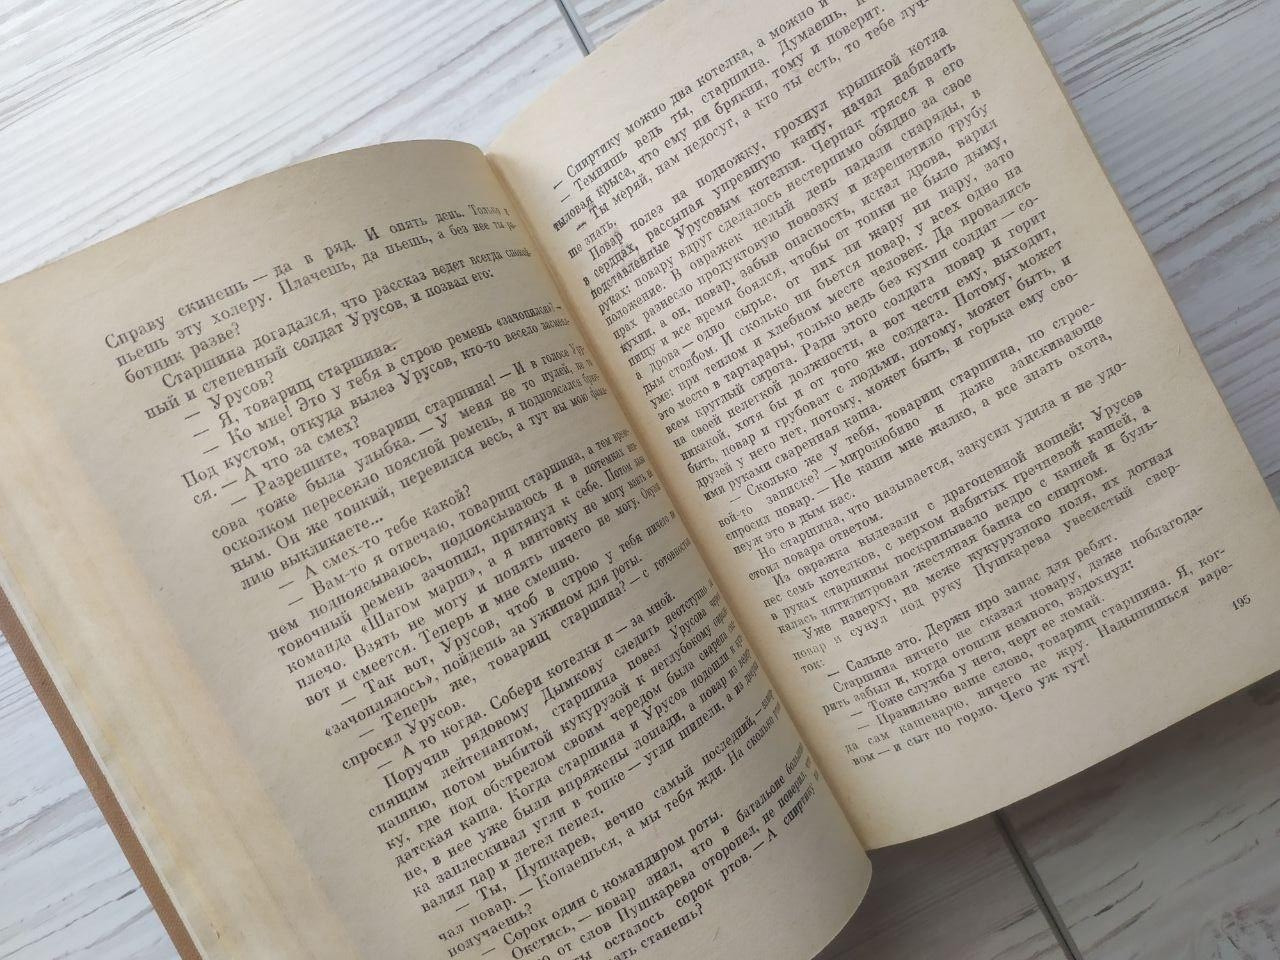 Справу скинешь — да в ряд. И опять день. Только и
пьешь эту холеру. Плачешь, да пьешь, а без нее ты ра-
ботник разве?
Старшина догадался, что рассказ ведет всегда спокой-
ный и степенный солдат Урусов, и позвал его:
— Урусов?
— Я, товарищ старшина.
— Ко мне! Это у тебя в строю ремень «зачопилося»? —
Под кустом, откуда вылез Урусов, кто-то весело засмеял-
ся. — А что за смех?
— Разрешите, товарищ старшина! — И в голосе Уру-
сова тоже была улыбка. — У меня не то пулей, не то
осколком пересекло поясной ремень, я подпоясался брюч-
ным. Он же тонкий, перевился весь, а тут вы мою фами-
лию выкликаете...
— А смех-то тебе какой?
— Вам-то я отвечаю, товарищ старшина, а тем време-
нем подпоясываюсь, подпоясываюсь и в потемках вин-
товочный ремень зачопил, притянул к себе. Потом
команда «Шагом марш», а я винтовку не могу взять на
плечо. Взять не могу и понять ничего не могу.
вот и смеется. Теперь и мне смешно.
— Так вот, Урусов, чтоб в строю у тебя ничего не
«зачоплялось», пойдешь за ужином для роты.
— Теперь же, товарищ старшина? — с готовностью
спросил Урусов.
— А то когда. Собери котелки и — за мной.
Поручив рядовому Дымкову следить неотступно за
спящим лейтенантом, старшина повел Урусова через
пашню, потом выбитой кукурузой к неглубокому
ку, где под обстрелом своим чередом была сварена сол-
датская каша. Когда старшина и Урусов подошли к кух-
не, в нее уже были впряжены лошади, а повар из
ка заплескивал угли в топке — угли шипели, а из дверки
валил пар и летел пепел.
— Ты, Пушкарев, вечно самый последний, —
чал повар. — Копаешься, а мы тебя жди. На сколько ртов
получаешь?
— Сорок один с командиром роты.
Окстись, — повар знал, что в батальоне больше
но от слов Пушкарева оторопел, не поверил, что
ты осталось сорок ртов. — А спиртику
ать станешь?
— Спиртику можно два котелка, а можно и
— Темнишь ведь ты, старшина. Думаешь,
тыловая крыса, что ему ни брякни, тому и поверит.
— Ты меряй, нам недосуг, а кто ты есть, то тебе луч-
ше знать.
Повар полез на подножку, грохнул крышкой котла
и в сердцах, рассыпая упревшую кашу, начал набивать
подставленные Урусовым котелки. Черпак трясся в его
руках: повару вдруг сделалось нестерпимо обидно за свое
положение. В овражек целый день падали снаряды, в
прах разнесло продуктовую повозку и изрешетило трубу
кухни, а он, повар, забыв опасность, искал дрова, варил
пищу и все время боялся, чтобы от топки не было дыму,
а дрова — одно сырье, от них ни жару ни пару, зато
дым столбом. И сколько ни бьется повар, у всех одно на
уме: при теплом и хлебном месте человек. Да провались
это место в тартарары, только ведь без кухни солдат — со-
всем круглый сирота. Ради этого солдата повар и горит
на своей нелегкой должности, а вот чести ему, выходит,
никакой, хотя бы и от того же солдата. Потому, может
быть, повар и грубоват с людьми, потому, может быть, и
друзей у него нет, потому, может быть, и горька ему сво-
ими руками сваренная каша.
— Сколько же у тебя, товарищ старшина, по строе-
вой-то записке? — миролюбиво и даже заискивающе
спросил повар. — Не каши мне жалко, а все знать охота,
неуж это в дым нас.
Но старшина, что называется, закусил удила и не удо-
стоил повара ответом.
Из овражка вылезали с драгоценной ношей: Урусов
нес семь котелков, с верхом набитых гречневой кашей, а
в руках старшины поскрипывало ведро с кашей и буль-
калась пятилитровая жестяная банка со спиртом.
Уже наверху, на меже кукурузного поля, их догнал
повар и сунул под руку Пушкарева увесистый свер-
ток:
— Сальце это. Держи про запас для ребят.
Старшина ничего не сказал повару, даже поблагода-
рить забыл и, когда отошли немного, вздохнул:
— Тоже служба у него, черт ее ломай.
— Правильно ваше слово, товарищ старшина. Я, ког-
да сам кашеварю, ничего не жру. Надышишься варе-
вом — и сыт по горло. Чего уж тут!
195